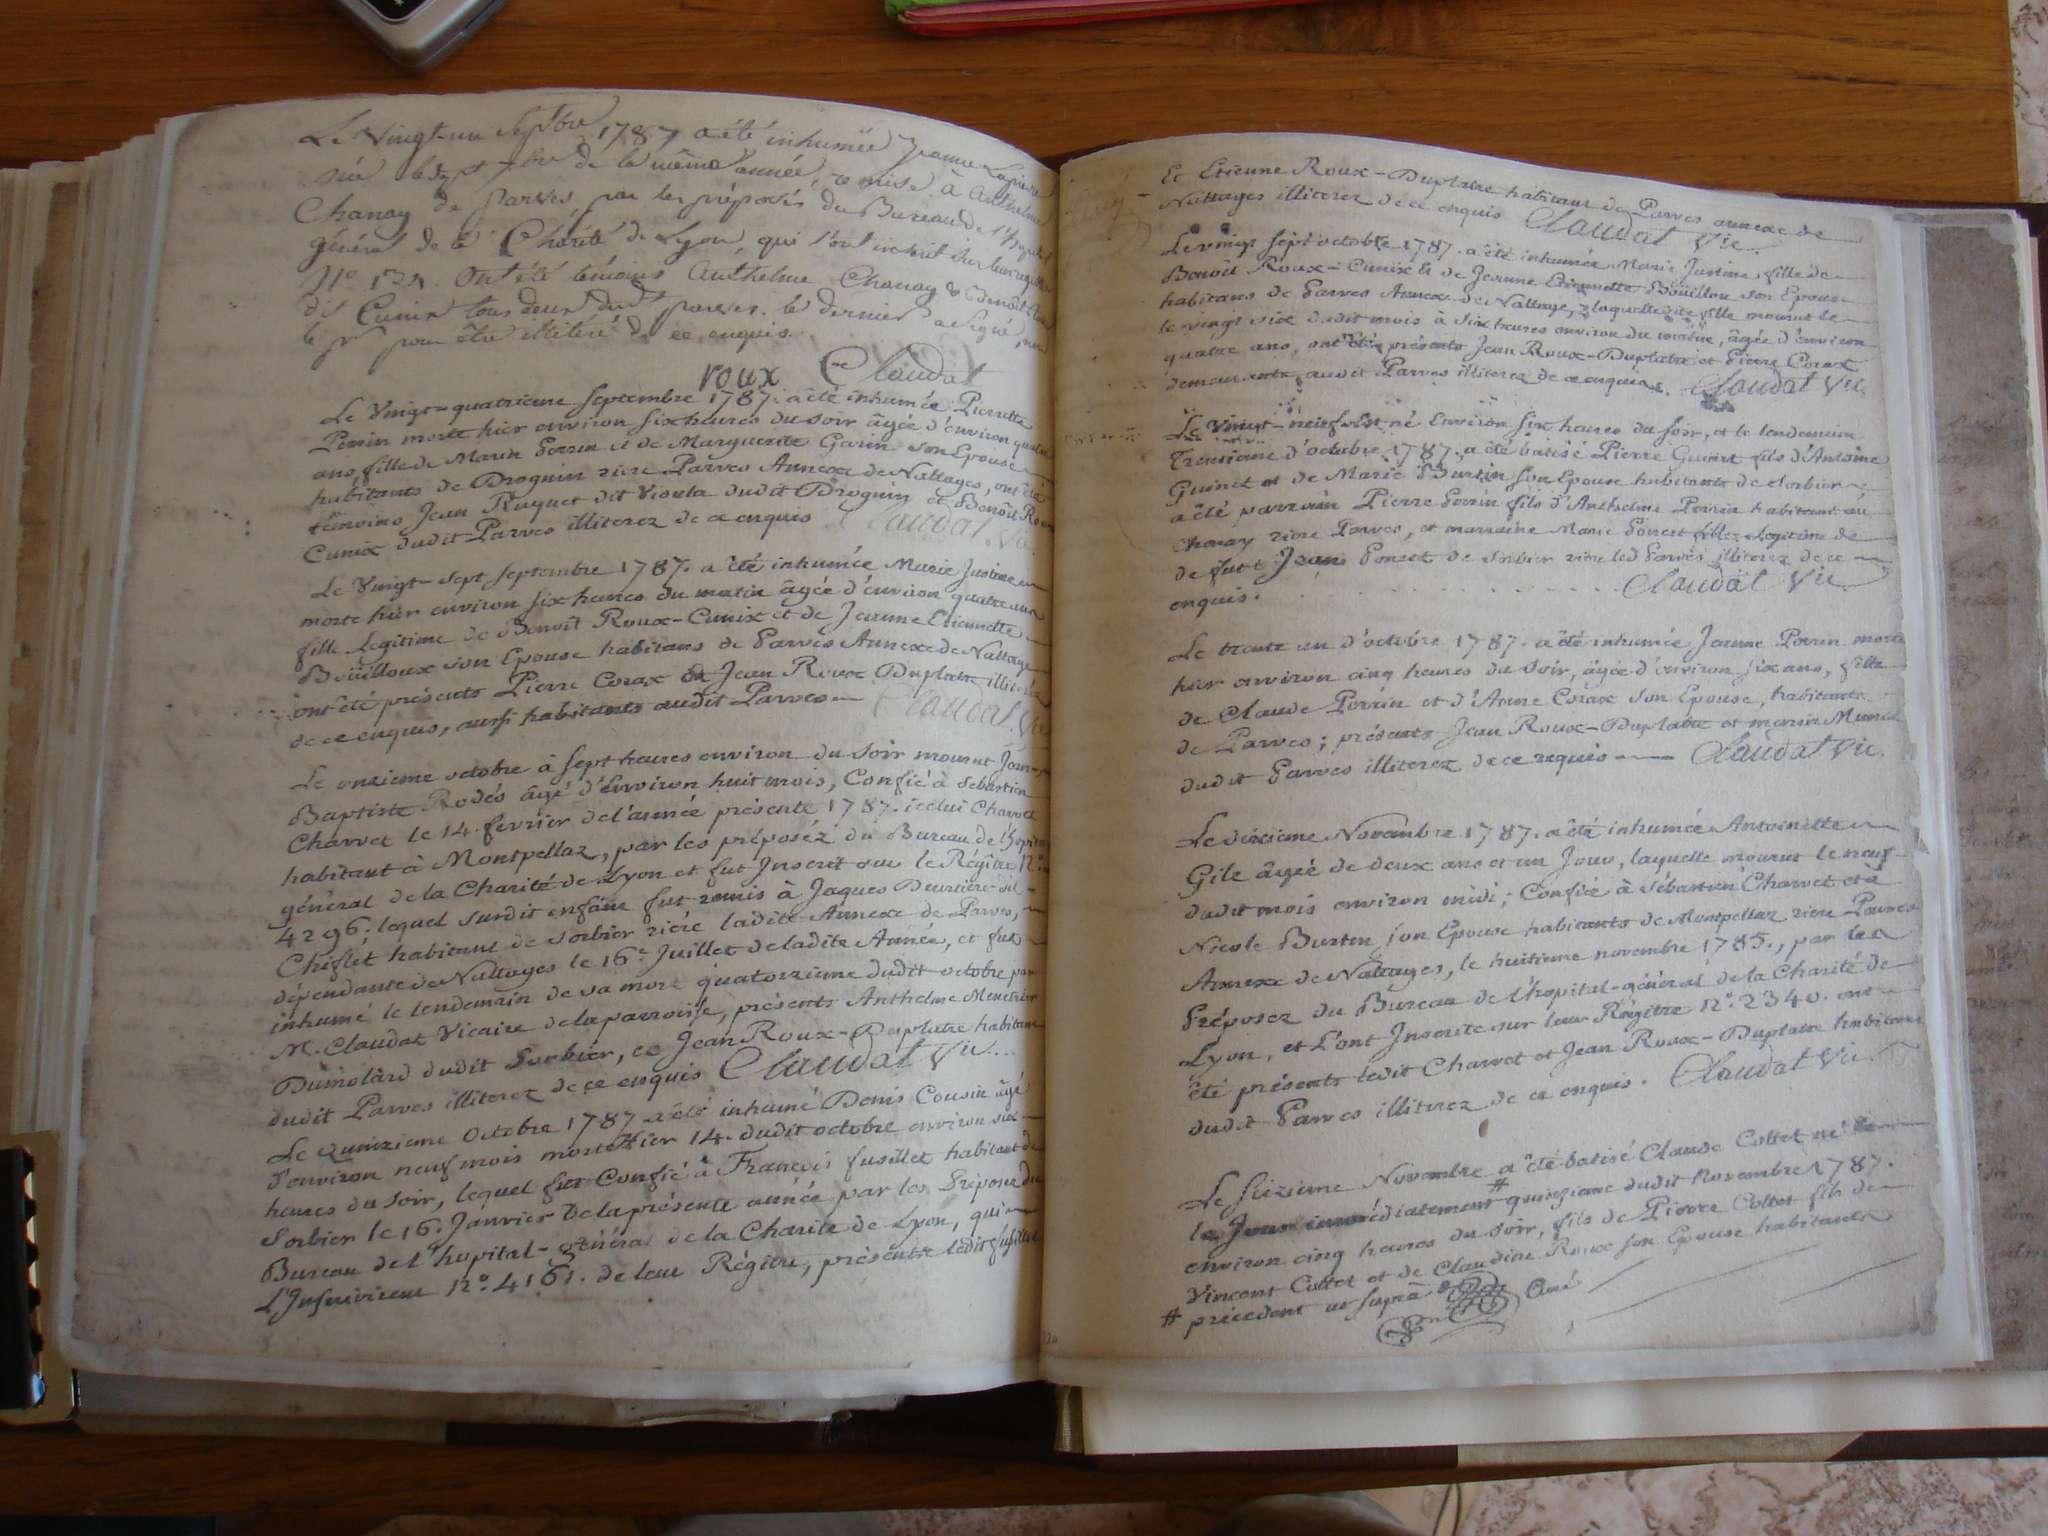 Le Vingt-un Septbre 1787 a été inhumée Jeanne
née le Sept 7bre de la même année, remise à Anthelme
Chanay de parves, par les préposés du Bureau de l'hopital
général de la Charité de Lyon, qui l'ont inscrit sur leur registre
N° Ont été témoins Anthelme Chanay & Benoit Roux
dit Cunix tous deux dudt parves. le dernier a signé, non
le pr pour être illitéré de ce enquis.
roux Claudat
Le Vingt-quatrieme Septembre 1787. a été inhumée Pierrette
Perrin morte hier environ six heures du soir âgée d'environ quatre
ans, fille de Marin Perrin et de Marguerite Garin son Epouse
habitants de Brognin riere Parves Annexe de Nattages, ont été
témoins Jean Ruguet dit Vioula dudit Brognin et Benoit Roux
Cunix dudit Parves illiterez de ce enquis Claudat Vic.
Le Vingt-sept Septembre 1787. a été inhumée Marie Justine
morte hier environ six heures du matin âgée d'environ quatre ans
fille Legitime de Benoît Roux-Cunix et de Jeanne Etiennette
Boüilloux son Epouse habitans de Parves Annexe de Nattage
ont été présents Pierre Corax et Jean Roux Duplatre illiterez
de ce enquis, aussi habitants audit Parves Claudat Vic
Le onzieme octobre à sept heures environ du soir mourut Jean-
Baptiste Rodés âgé d'environ huit mois, Confié à Sebastien
Charvet le 14. fevrier de l'année présente 1787. icelui Charvet
habitant à Montpellaz, par les préposéz du Bureau de l'hopital
général de la Charité de Lyon et fut Inscrit sur le Régître N°.
4296; lequel susdit enfant fut remis à Jaques
Chiflet habitant de Sorbier riére ladite Annexe de Parves,
dépendante de Nattages le 16e Juillet de ladite Année, et fut
inhumé le lendemain de sa mort quatorzieme dudit octobre par
M. Claudat Vicaire de la parroisse, présents Anthelme
Dumolard dudit Sorbier, et Jean Roux-Duplatre habitant
dudit Parves illiterez de ce enquis Claudat Vic....
Le Quinzieme Octobre 1787 a été inhumé Denis Cousin âgé
d'environ neuf mois mort Hier 14. dudit octobre environ six
heures du soir, lequel fut Confié à François fusillet habitant de
Sorbier le 16. Janvier de la présente année par les Préposez du
Bureau de l'hopital-général de la Charité de Lyon, qui
L'Inscrivirent N°. 4161. de leur Régître, présents ledit fusillet
Et Etienne Roux-Duplatre habitant de Parves annexe de
Nattages illiterez de ce enquis Claudat Vic.
Le vingt sept octobre 1787. a été inhumée Marie Justine, fille de
Benoît Roux-Cunix et de Jeanne Etiennette Boüillou son Epouse
habitans de Parves Annexe de Nattage, laquelle dite fille mourut le
le vingt six dudit mois à six heures environ du matin, âgée d'environ
quatre ans, ont été présents Jean Roux-Duplatre et Pierre Corax
demeurants audit Parves illiterez de ce enquis. Claudat Vic.
Le Vingt-neuf est né Environ six heures du soir, et le lendemain
Trentieme d'octobre 1787. a été batisé Pierre Guinet fils d'Antoine
Guinet et de Marie Burtin son Epouse habitants de Sorbier
a été parrain Pierre Perrin fils d'Anthelme Perrin habitant au
Chanay riere Parves, et marraine Marie Poncet fille Legitime de
de fut Jean Poncet de Sorbier riere led Parves illiterez de ce
enquis. Claudat Vic
Le trente un d'octobre 1787. a été inhumée Jeanne Perrin morte
hier environ cinq heures du soir, âgée d'environ six ans, fille
de Claude Perrin et d'Anne Corax son Epouse, habitants
de Parves; présents Jean Roux-Duplatre et
dudit Parves illiterez de ce requis Claudat Vic.
Le dixieme Novembre 1787. a été inhumée Antoinette
Gile âgée de deux ans et un Jour, laquelle mourut le neuf
dudit mois environ midi; Confiée à Sébastien Charvet et à
Nicole Burtin son Epouse habitants de Montpellaz riere Parves
Annexe de Nattages, le huitieme novembre 1785., par les
Préposez du Bureau de l'hopital-général de la Charité de
Lyon, et l'ont Inscrite sur leur Régître N°. 2340. ont
été présents ledit Charvet et Jean Roux-Duplatre habitans
dudit Parves illiterez de ce enquis. Claudat Vic.
Le seizieme Novembre a été batisé Claude Collet né le
le Jour immédiatement # quinzieme dudit Novembre 1787.
environ cinq heures du soir, fils de Pierre Collet fils de
Vincent Collet et de Claudine Roux son Epouse habitants
# précédent ut supra